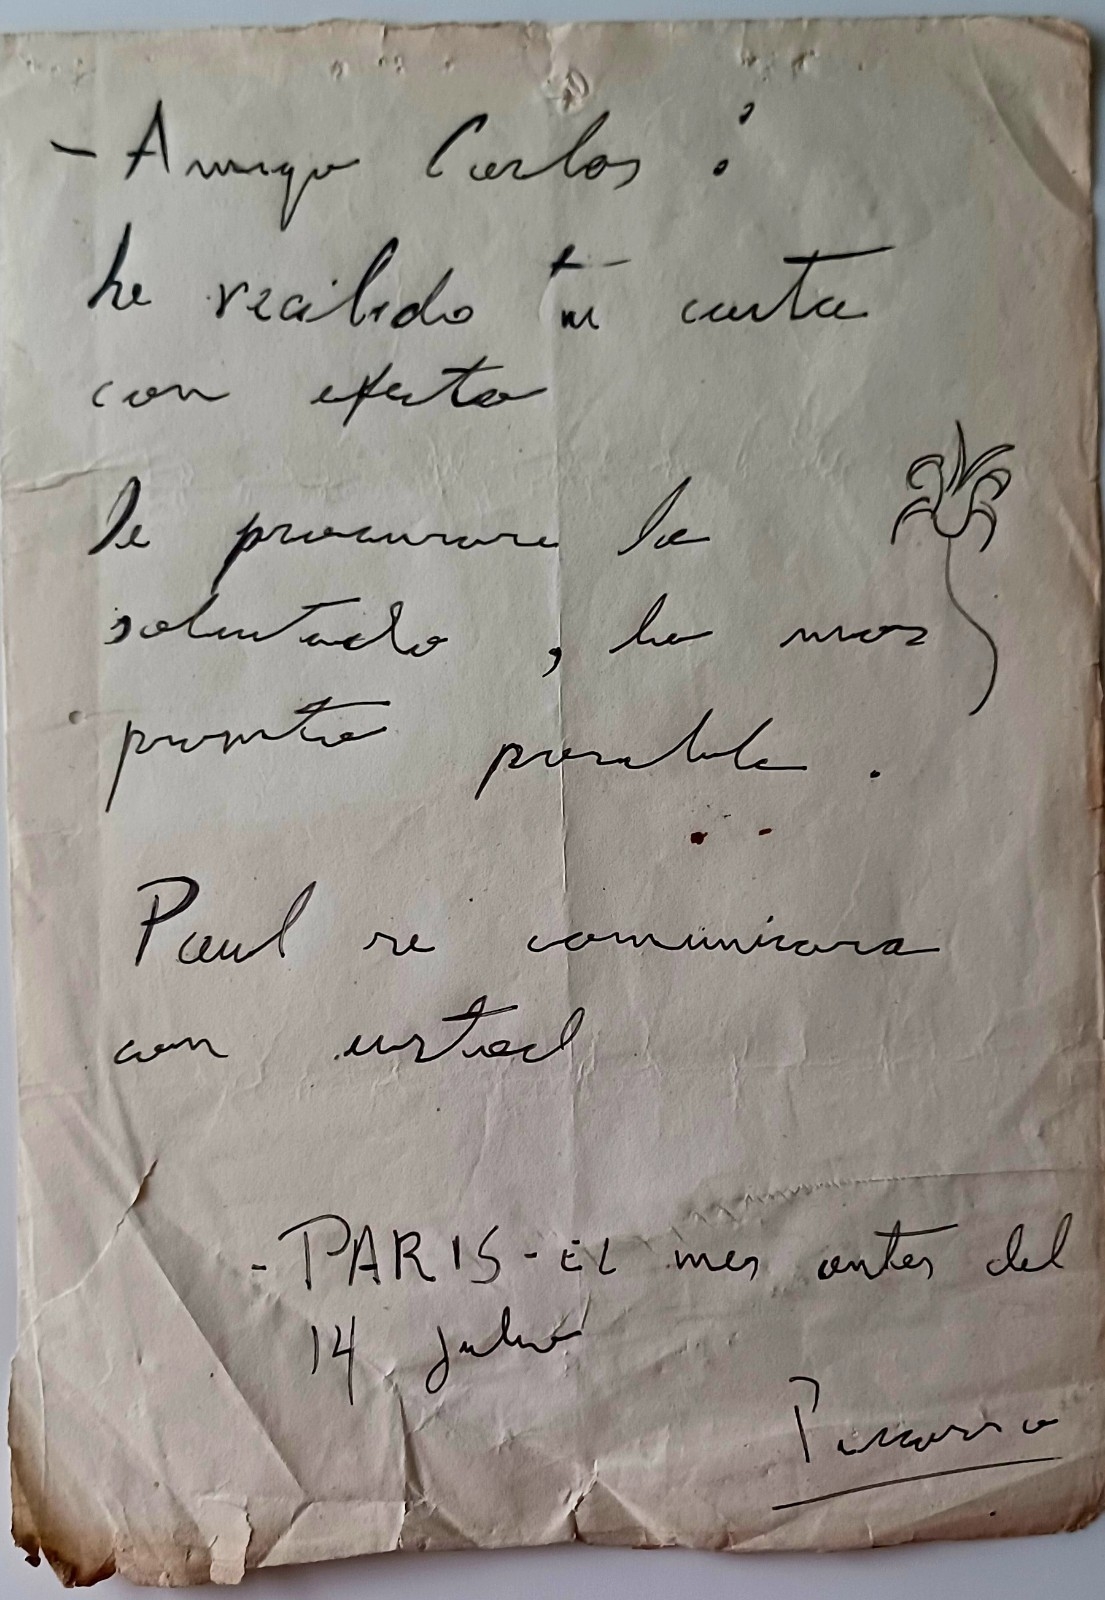 - Amigo Carlos :
he recibido tu carta
con efecto
le procurare lo
solicitado , lo mas
pronto posible .
Paul se comunicara
con usted
- PARIS - EL mes antes del
14 julio
Picasso